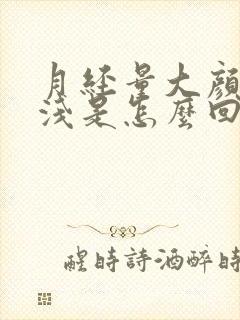 月經量大顏
淺是怎麼回
醒時詩酒醉時